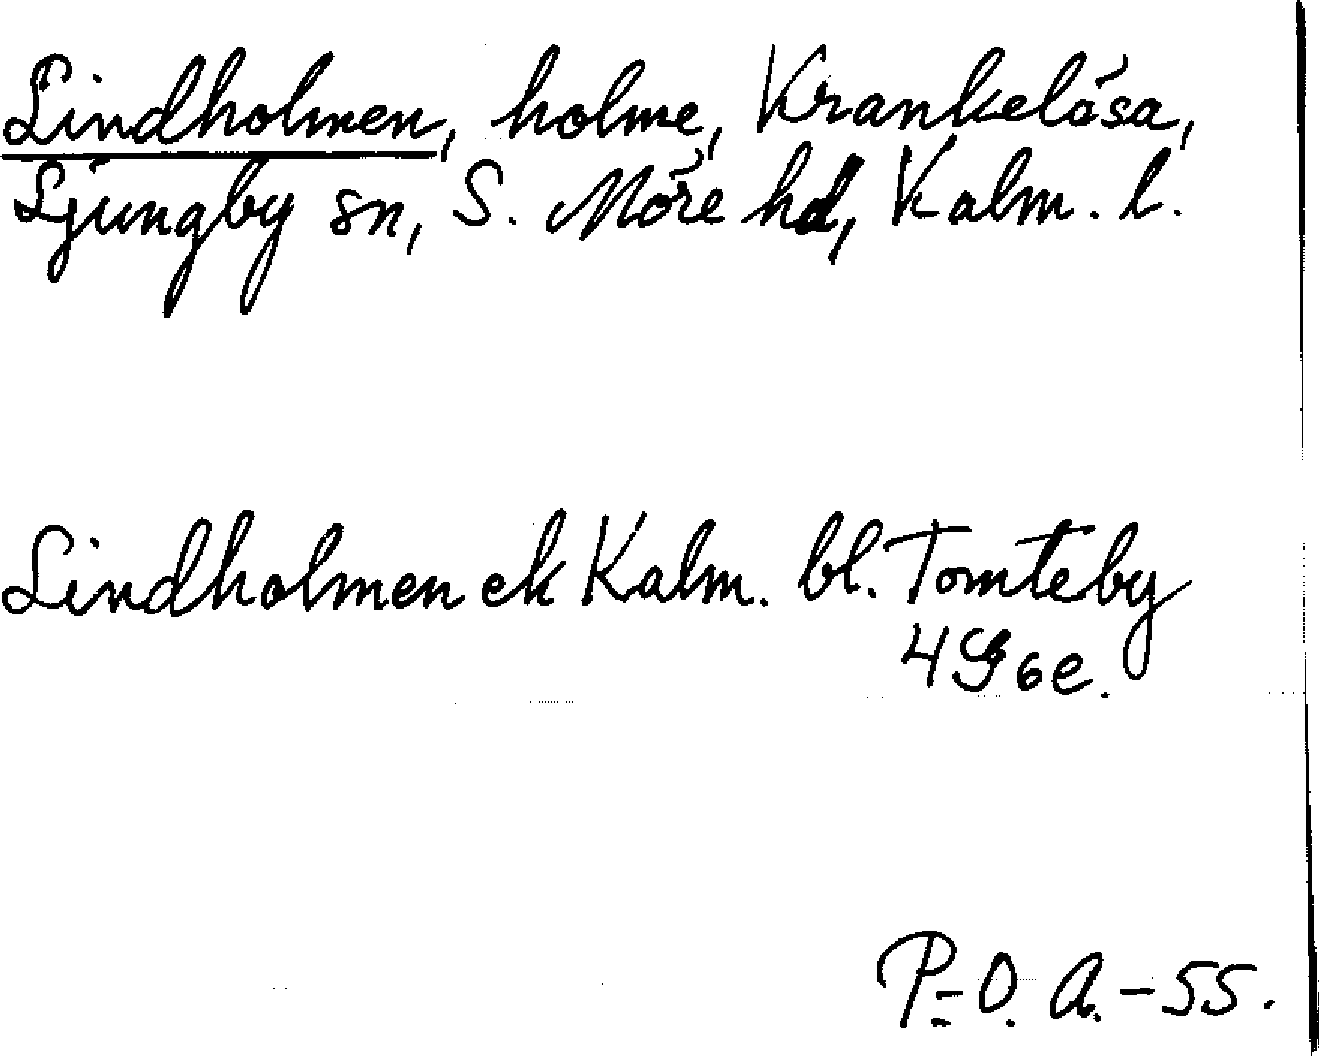 Lindholmen, holme, Krankelösa,
Ljungby sn, S. Möre hd, Kalm. l.
Lindholmen ek Kalm. bl. Tomteby
4G6e.
P.-O. A. -55.